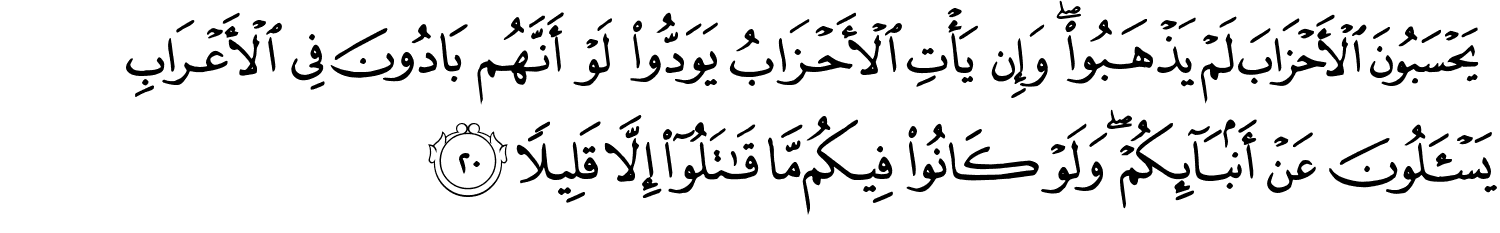 يَحْسَبُونَ ٱلْأَحْزَابَ لَمْ يَذْهَبُوا۟ ۖ وَإِن يَأْتِ ٱلْأَحْزَابُ يَوَدُّوا۟ لَوْ أَنَّهُم بَادُونَ فِى ٱلْأَعْرَابِ
يَسْـَٔلُونَ عَنْ أَنۢبَآئِكُمْ ۖ وَلَوْ كَانُوا۟ فِيكُم مَّا قَـٰتَلُوٓا۟ إِلَّا قَلِيلًا ٢٠